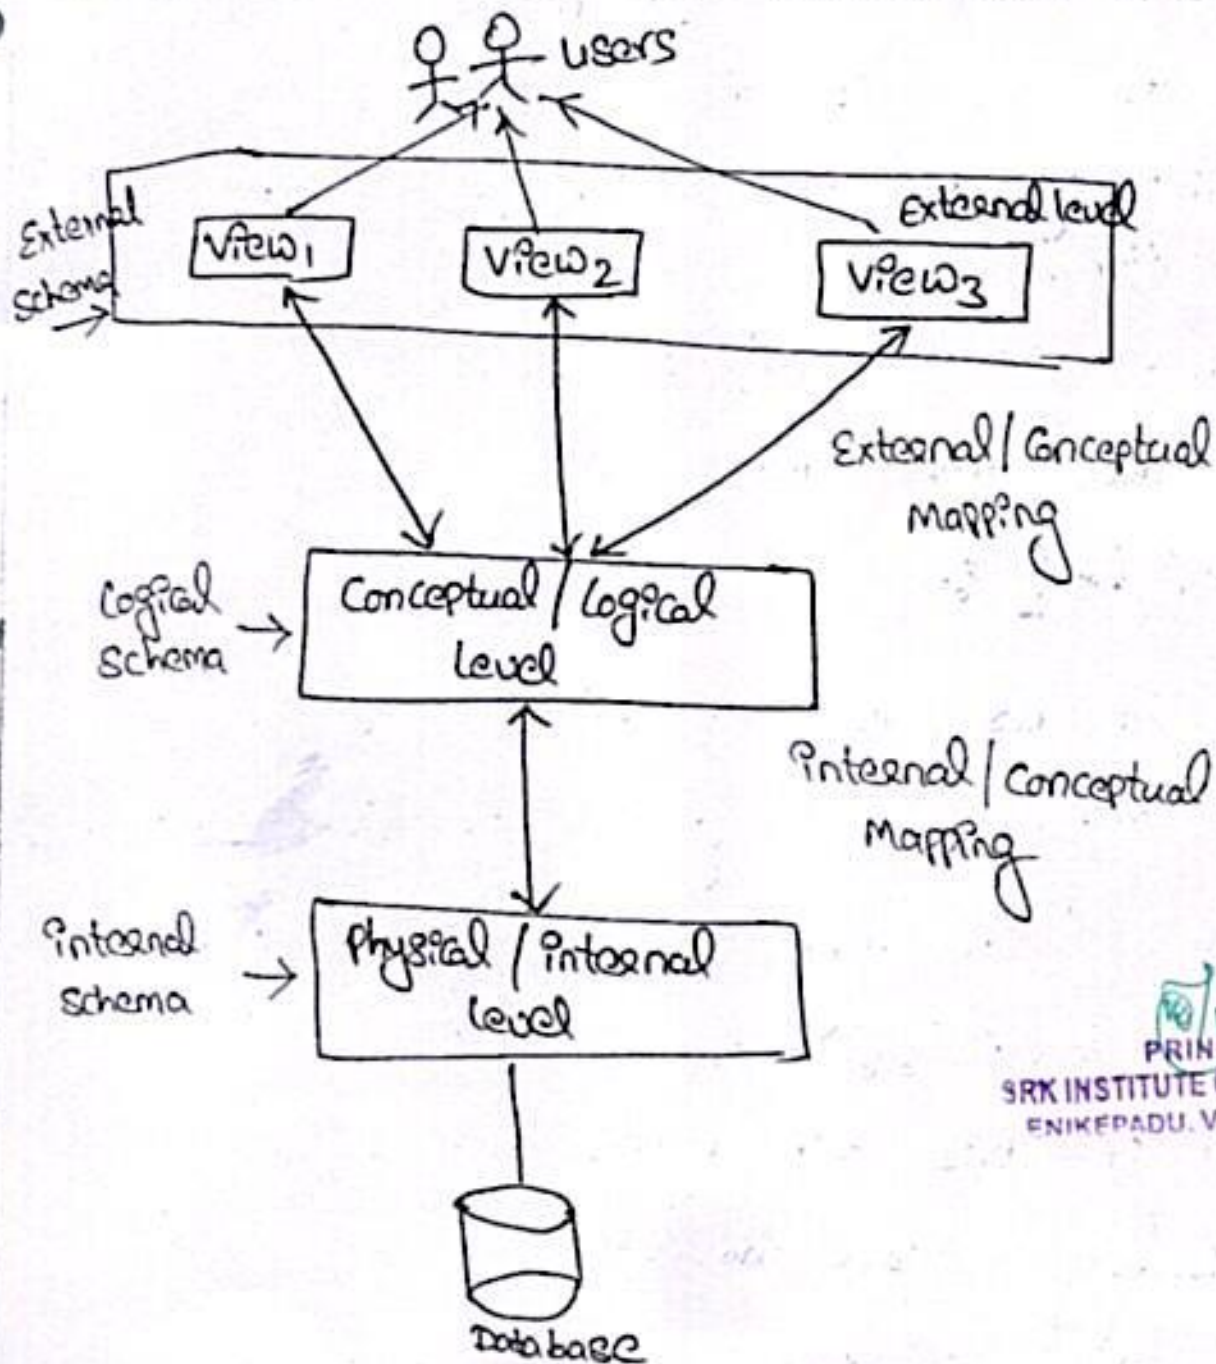 users
External level
External
schema
View1
View2
View3
External/Conceptual
Mapping
Logical
schema
Conceptual/Logical
level
Internal/Conceptual
Mapping
Internal
schema
Physical/Internal
level
PRIN
SRK INSTITUTE
ENIKEPADU. V
Database